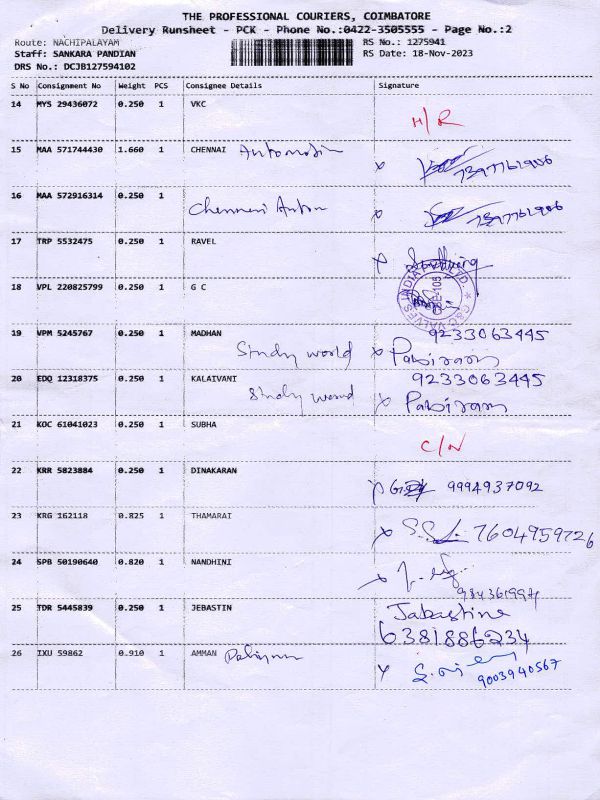 THE PROFESSIONAL COURIERS, COIMBATORE
Delivery Runsheet - PCK - Phone No.:0422-3505555 - Page No.:2
Route: NACHIPALAYAM RS No.: 1275941
Staff: SANKARA PANDIAN RS Date: 18-Nov-2023
DRS No.: DCJB127594102
S No Consignment No Weight PCS Consignee Details Signature
14 MYS 29436072 0.250 1 VKC
H/R
15 MAA 571744430 1.660 1 CHENNAI
7397761906
16 MAA 572916314 0.250 1
Chennai
7397761906
17 TRP 5532475 0.250 1 RAVEL
18 VPL 220825799 0.250 1 G C
19 VPM 5245767 0.250 1 MADHAN 9233063445
Study world x Pabiram
20 EDQ 12318375 0.250 1 KALAIVANI 9233063445
Study world x Pabiram
21 KOC 61041023 0.250 1 SUBHA
C/N
22 KRR 5823884 0.250 1 DINAKARAN
9994937092
23 KRG 162118 0.825 1 THAMARAI
7604959726
24 SPB 50190640 0.820 1 NANDHINI
25 TDR 5445839 0.250 1 JEBASTIN Jabastine
6381886234
26 IXU 59862 0.910 1 AMMAN
9003940567